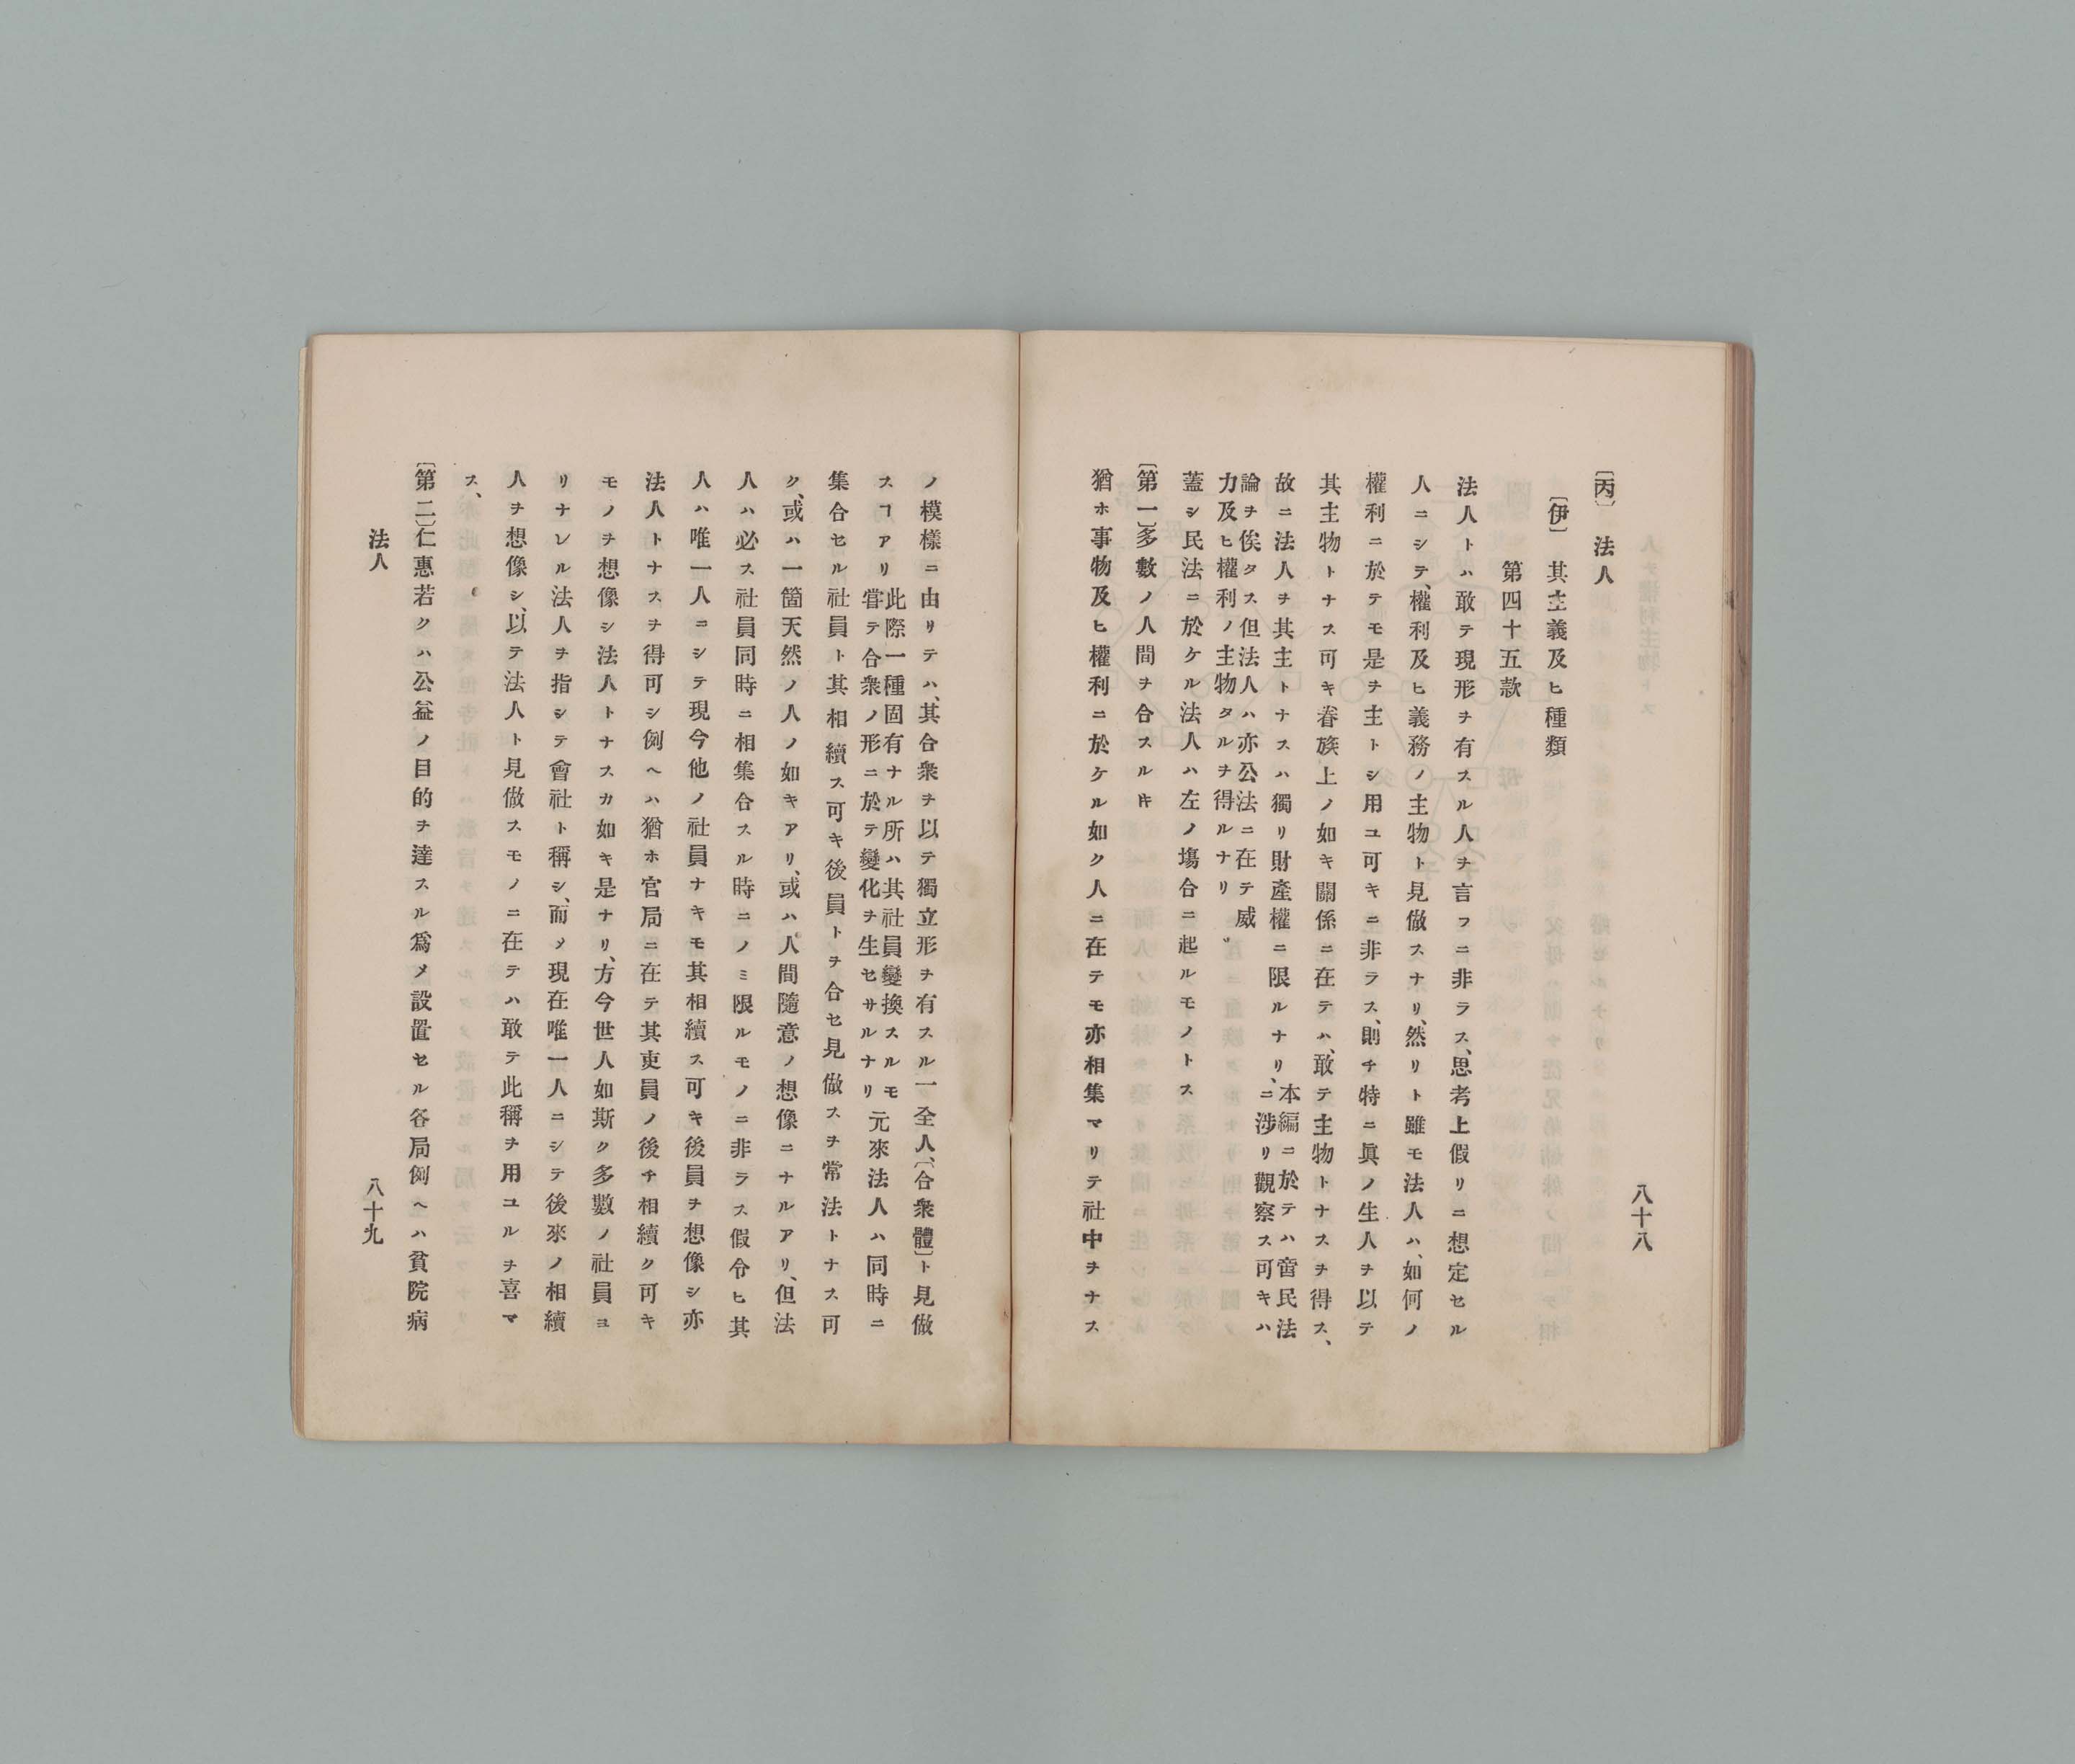 八十八
〔丙〕 法人
〔伊〕 其主義及ヒ種類
第四十五款
法人トハ敢テ現形ヲ有スル人ヲ言フニ非ラス、思考上假リニ想定セル
人ニシテ、權利及ヒ義務ノ主物ト見做スナリ、然リト雖モ法人ハ、如何ノ
權利ニ於テモ是ヲ主トシ用ユ可キニ非ラス、則チ特ニ眞ノ生人ヲ以テ
其主物トナス可キ眷族上ノ如キ關係ニ在テハ、敢テ主物トナスヲ得ス、
故ニ法人ヲ其主トナスハ獨リ財產權ニ限ルナリ、
本編ニ於テハ啻民法
ニ涉リ觀察ス可キハ
論ヲ俟タス但法人ハ亦公法ニ在テ威
力及ヒ權利ノ主物タルヲ得ルナリ
蓋シ民法ニ於ケル法人ハ左ノ塲合ニ起ルモノトス
〔第一〕多數ノ人間ヲ合スルキ
猶ホ事物及ヒ權利ニ於ケル如ク人ニ在テモ亦相集マリテ社中ヲナス
ノ模樣ニ由リテハ、其合衆ヲ以テ獨立形ヲ有スル一全人、〔合衆體〕ト見做
スヿアリ
此際一種固有ナル所ハ其社員變換スルモ
甞テ合衆ノ形ニ於テ變化ヲ生セサルナリ
元來法人ハ同時ニ
集合セル社員ト其相續ス可キ後員トヲ合セ見做スヲ常法トナス可
ク、或ハ一箇天然ノ人ノ如キアリ、或ハ人間隨意ノ想像ニナルアリ、但法
人ハ必ス社員同時ニ相集合スル時ニノミ限ルモノニ非ラス假令ヒ其
人ハ唯一人ニシテ現今他ノ社員ナキモ其相續ス可キ後員ヲ想像シ亦
法人トナスヲ得可シ例ヘハ猶ホ官局ニ在テ其吏員ノ後チ相續ク可キ
モノヲ想像シ法人トナスカ如キ是ナリ、方今世人如斯ク多數ノ社員ヨ
リナレル法人ヲ指シテ會社ト稱シ、而メ現在唯一人ニシテ後來ノ相續
人ヲ想像シ、以テ法人ト見做スモノニ在テハ敢テ此稱ヲ用ユルヲ喜マ
ス、
〔第二〕仁惠若クハ公益ノ目的ヲ達スル爲メ設置セル各局例ヘハ貧院病
法人
八十九